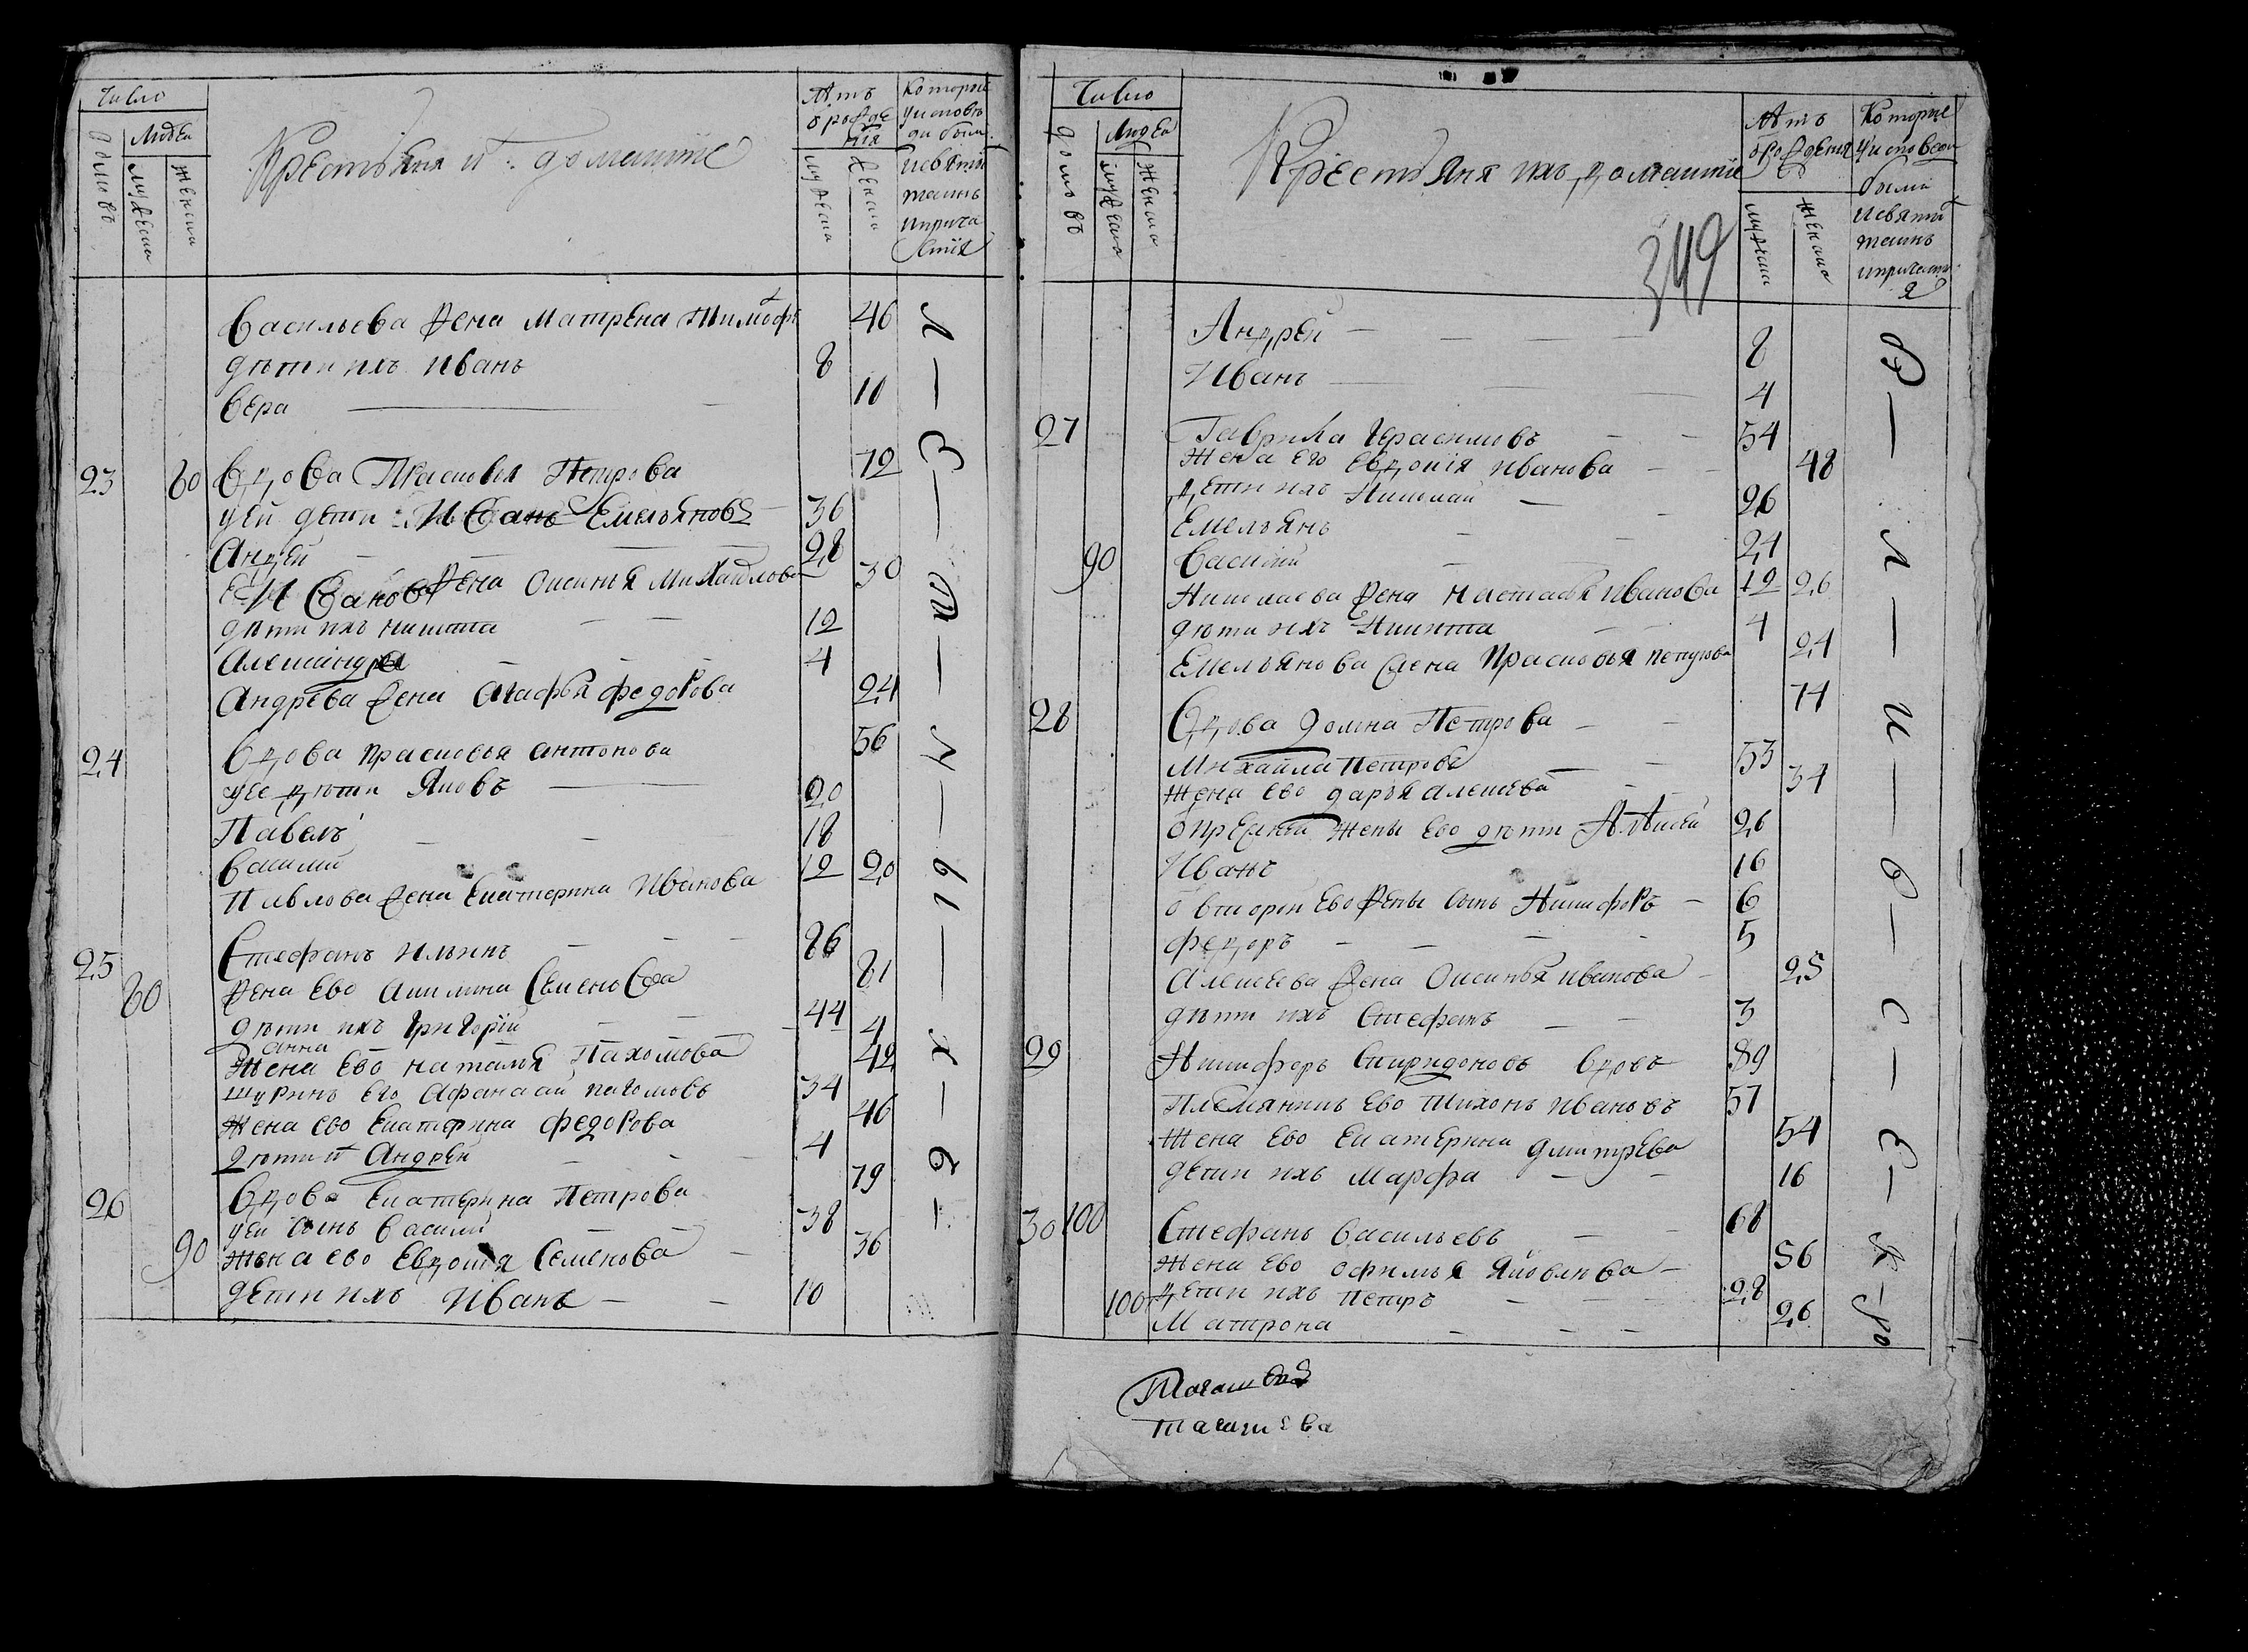 Число
Людей
домовъ
мужеска
женска
Крестьяня и домашние
Лѣтъ
мужеска
женска
Которые
у исповѣ
ди были
и святы
таинъ
прича
стия
Васильева жена Матрена Тимофе 46
дѣти ихъ Иванъ 8
Вера 10
23 80 Вдова Прасковья Петрова 72
у ей дети Иванъ Емельяновъ 36
Андрей 28
Иванова жена Оксинья Михайлова 30
дѣти ихъ Никита 12
Александра 4
Андрѣева жена Агафья Федорова 24
24 Вдова Прасковья Антонова 56
у ее дѣти Яковъ 20
Павелъ 18
Василий 12
Павлова жена Екатерина Иванова 20
25 Стефанъ Ильинъ 86
80 жена ево Акилина Семенова 81
дѣти ихъ Григорій 44
Анна 4
Жена ево Наталья Пахомова 42
шуринъ его Афанасий Пахомовъ 34
Жена ево Екатерина Федорова 46
дѣти и Андрей 4
26 Вдова Екатерина Петрова 79
у ей сынъ Василий 38
90 Жена ево Евдокия Семенова 36
дети ихъ Иванъ 10
Число
Людей
домовъ
мужеска
женска
Крестьяня ихъ домашние
349
Лѣтъ
мужеска
женска
Которые
у исповеди
были
и святы
таинъ
Андрей 8
Иванъ 4
27 Гаврила Герасимовъ 54
Жена его Евдокия Иванова 48
дети ихъ Николай 26
Емельянъ 24
90 Василий 12
Николаева жена Настасья Иванова 26
дѣти ихъ Никита 4
Емельянова жена Прасковья Петрова 24
28 Вдова Домна Петрова 74
Михайла Петровъ 53
Жена ево Дарья Алексева 34
о прежней жены ево дѣти Алексей 26
Иванъ 16
о второй ево жены сынъ Никифоръ 6
Федоръ 5
Алексеева жена Оксинья Иванова 25
дѣти ихъ Стефанъ 3
29 Никифоръ Спиридоновъ вдовъ 89
Племянникъ ево Тихонъ Ивановъ 57
Жена ево Екатерина Дмитрева 54
дети ихъ Марфа 16
30 100 Стефанъ Васильевъ 68
Жена ево Офимья Яковлева 56
100 дети ихъ Петръ 28
Матрона 26